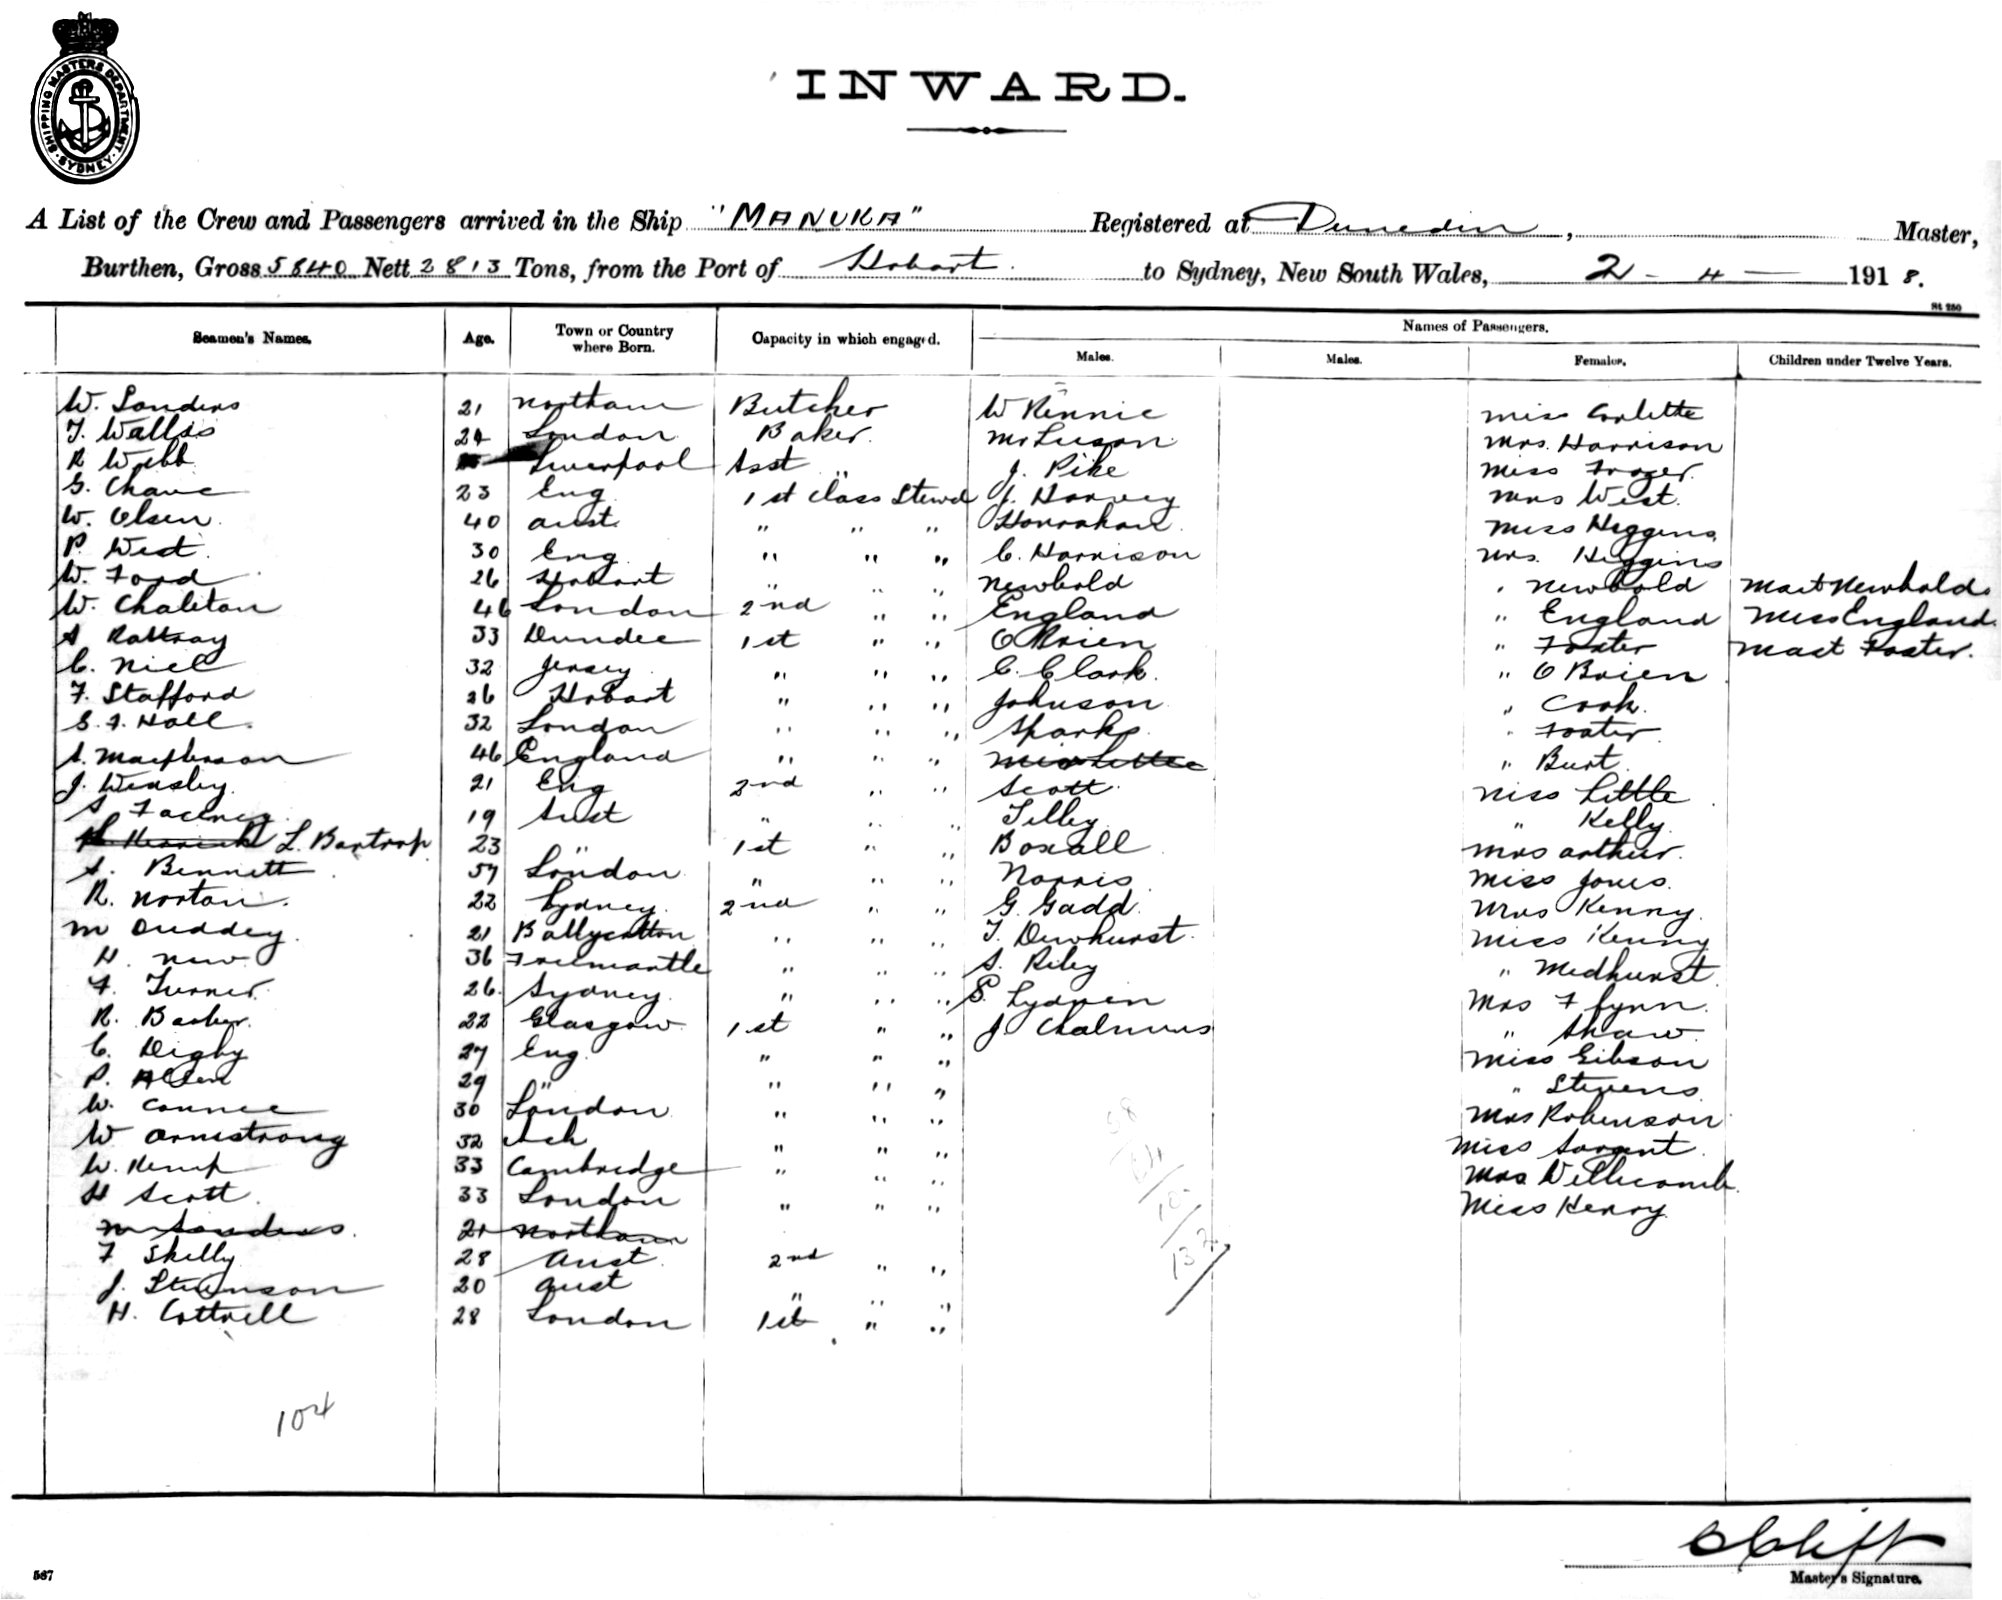 SHIPPING MASTERS DEPARTMENT
SYDNEY
INWARD.
A List of the Crew and Passengers arrived in the Ship "MANUKA" Registered at Dunedin, Master,
Burthen, Gross 5840 Nett 2813 Tons, from the Port of Hobart. to Sydney, New South Wales, 2 - 4 - 1918.
St 250
Names of Passengers.
Seamen's Names. Age. Town or Country where Born. Capacity in which engaged. Males. Males. Females. Children under Twelve Years.
W. Sanders 21 Northam Butcher W Rennie Miss Corlette
T. Wallis 24 London Baker. Mr Luson Mrs. Harrison
R Webb Liverpool Asst " J. Pike Miss Frazer.
G. Chave 23 Eng 1st Class Stewd J. Harvey Mrs West.
W. Olsen 40 Aust " " " Hanrahan Miss Higgins
P. West 30 Eng " " " C. Harrison Mrs. Higgins
W. Ford 26 Hobart " " " Newbold " Newbold Mast Newbold
W. Chaleton 46 London 2nd " " England " England Miss England
A Rattray 33 Dundee 1st " " O'Brien " Foster Mast Foster.
C. Niel 32 Jersey " " " C. Clark " O Brien
F. Stafford 26 Hobart " " " Johnson " Cook.
E. F. Hall. 32 London " " " Sparks " Foster
A. Macpherson 46 England " " " Miss Little " Burt
J. Wensley 21 Eng 2nd " " Scott Miss Little
A 19 Aust " " " Tilley " Kelly
L. Bartrop 23 " 1st " " Boxall Mrs Arthur.
A. Bennett 57 London " " " Norris Miss Jones.
R. Norton. 22 Sydney 2nd " " G. Gadd Mrs Kenny.
M Cuddey 21 Ballycotton " " " T. Dewhurst Miss Kenny
H. New 36 Freemantle " " " A. Riley " Medhurst
F. Turner 26. Sydney " " " P. Lydnen Mrs Flynn
R. Barker. 22 Glasgow 1st " " J. Chalmers " Shaw
C. Digby 27 Eng. " " " Miss Gibson
P. Allen 29 " " " " " Stevens
W. Connee 30 London " " " Mrs Robinson
W Armstrong 32 " " " Miss Sargent
W. Kemp 33 Cambridge " " " Mrs Wellicomb
H Scott 33 London " " " Miss Henry
W Sanders 21 Northam
F Skelly 28 Aust 2nd " "
J. Stevenson 20 Aust " " "
H. Cottrell 28 London 1st " "
132
104
C Clift
Master's Signature.
567